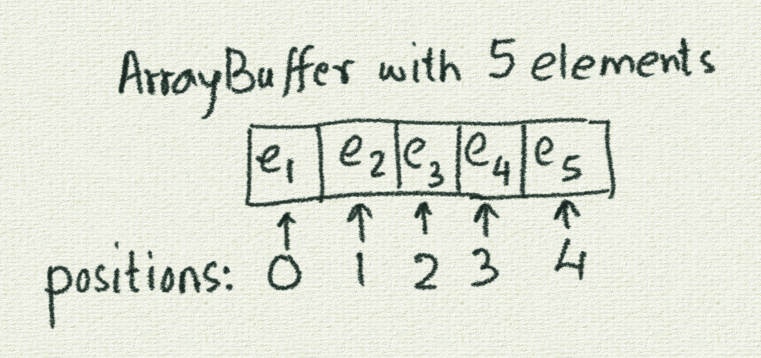 ArrayBuffer with 5 elements
e₁ e₂ e₃ e₄ e₅
↑ ↑ ↑ ↑ ↑
positions: 0 1 2 3 4